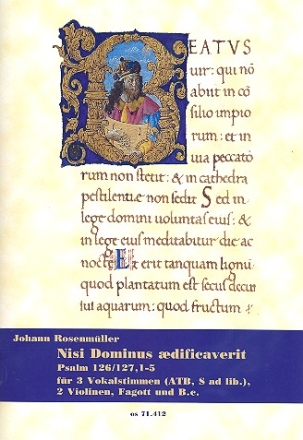 BEATVS
uir: qui nõ
abiit in cõ
silio impio
rum: et in
uia peccato
rum non stetit: & in cathedra
pestilentiæ non sedit Sed in
lege domini uoluntas eius: &
in lege eius meditabitur die ac
nocte Et erit tanquam lignũ
quod plantatum est secus decur
sus aquarum: quod fructum
Johann Rosenmüller
Nisi Dominus ædificaverit
Psalm 126/127,1-5
für 3 Vokalstimmen (ATB, S ad lib.),
2 Violinen, Fagott und B.c.
os 71.412